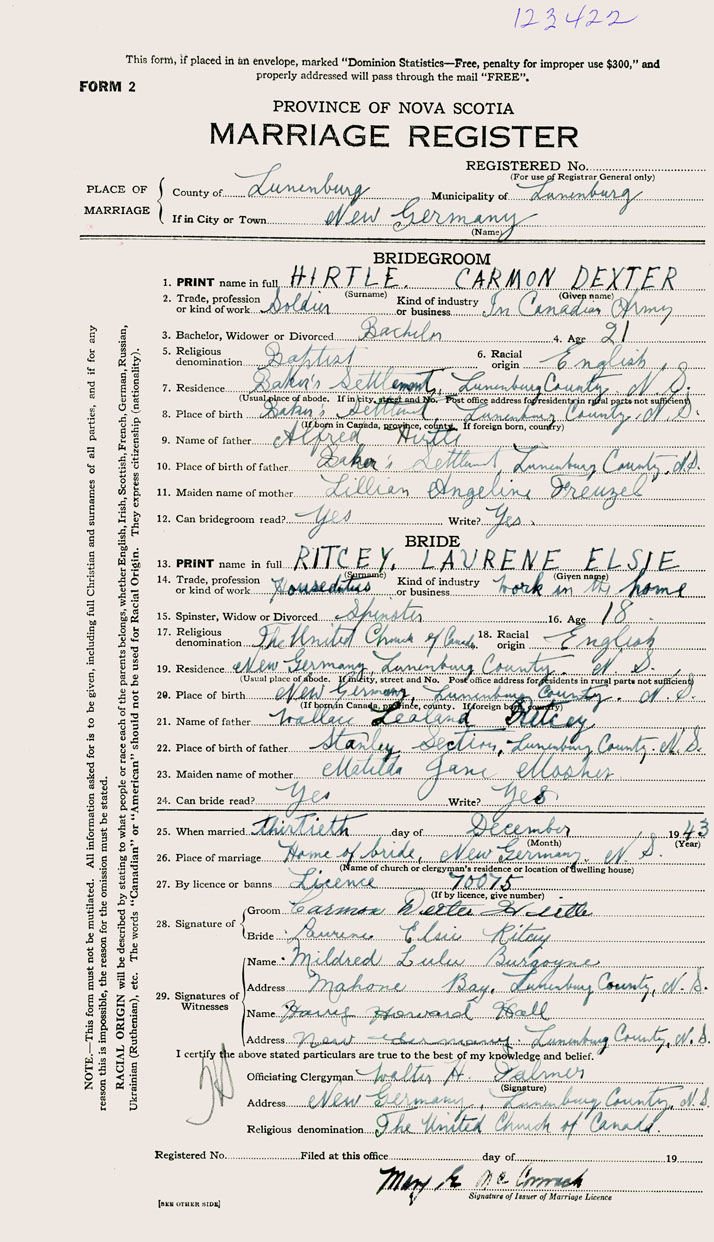 123422
This form, if placed in an envelope, marked "Dominion Statistics—Free, penalty for improper use $300," and
properly addressed will pass through the mail "FREE".
FORM 2
PROVINCE OF NOVA SCOTIA
MARRIAGE REGISTER
REGISTERED No.
(For use of Registrar General only)
PLACE OF MARRIAGE
County of Lunenburg Municipality of Lunenburg
If in City or Town New Germany
(Name)
BRIDEGROOM
1. PRINT name in full HIRTLE. CARMON DEXTER
(Surname) (Given name)
2. Trade, profession or kind of work Soldier Kind of industry or business In Canadian Army
3. Bachelor, Widower or Divorced Bachelor 4. Age 21
5. Religious denomination Baptist 6. Racial origin English
7. Residence Baker's Settlement, Lunenburg County, N.S.
(Usual place of abode. If in city, street and No. Post office address for residents in rural parts not sufficient)
8. Place of birth Baker's Settlement, Lunenburg County, N.S.
(If born in Canada, province, county. If foreign born, country)
9. Name of father Alfred Hirtle
10. Place of birth of father Baker's Settlement, Lunenburg County, N.S.
11. Maiden name of mother Lillian Angeline Freuzel
12. Can bridegroom read? Yes Write? Yes.
BRIDE
13. PRINT name in full RITCEY, LAURENE ELSIE
(Surname) (Given name)
14. Trade, profession or kind of work Houseduties Kind of industry or business work in the home
15. Spinster, Widow or Divorced Spinster 16. Age 18
17. Religious denomination The United Church of Canada 18. Racial origin English
19. Residence New Germany, Lunenburg County, N.S.
(Usual place of abode. If in city, street and No. Post office address for residents in rural parts not sufficient)
20. Place of birth New Germany, Lunenburg County. N.S.
(If born in Canada, province, county. If foreign born, country)
21. Name of father Wallace Lealand Ritcey
22. Place of birth of father Stanley Section, Lunenburg County. N.S.
23. Maiden name of mother Matilda Jane Mosher
24. Can bride read? Yes Write? Yes
25. When married thirtieth day of December 1943
(Month) (Year)
26. Place of marriage Home of bride, New Germany, N.S.
(Name of church or clergyman's residence or location of dwelling house)
27. By licence or banns Licence 70075
(If by licence, give number)
28. Signature of
Groom Carmon Dexter Hirtle
Bride Laurene Elsie Ritcey
29. Signatures of Witnesses
Name Mildred Lulu Burgoyne
Address Mahone Bay, Lunenburg County, N.S.
Name Harry Howard Hall
Address New Germany Lunenburg County, N.S.
I certify the above stated particulars are true to the best of my knowledge and belief.
Officiating Clergyman Walter H. Palmer
(Signature)
Address New Germany, Lunenburg County, N.S.
Religious denomination The United Church of Canada.
Registered No. Filed at this office day of 19
Mary E McCormack
Signature of Issuer of Marriage Licence
[SEE OTHER SIDE]
NOTE.—This form must not be mutilated. All information asked for is to be given, including full Christian and surnames of all parties, and if for any
reason this is impossible, the reason for the omission must be stated.
RACIAL ORIGIN will be described by stating to what people or race each of the parents belongs, whether English, Irish, Scottish, French, German, Russian,
Ukrainian (Ruthenian), etc. The words "Canadian" or "American" should not be used for Racial Origin. They express citizenship (nationality).